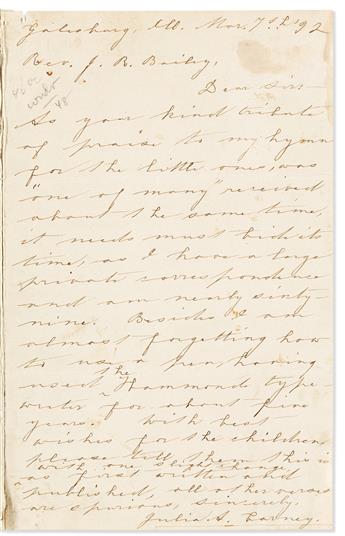 Galesburg, Ill. Mar. 7th 92
Rev. J. R. Bailey,
Dear Sir:-
As your kind tribute
of praise to my hymn
for the little ones, was
"one of many" received
about the same time,
it needs must bid its
time, as I have a large
private correspondence
and am nearly sixty-
nine. Besides I am
almost forgetting how
to use a pen, having
used the Hammond type-
writer for about five
years. With best
wishes for the children,
please tell them this is
with one slight change,
as first written and
published, all other verses
are spurious, sincerely,
Julia A. Carney.